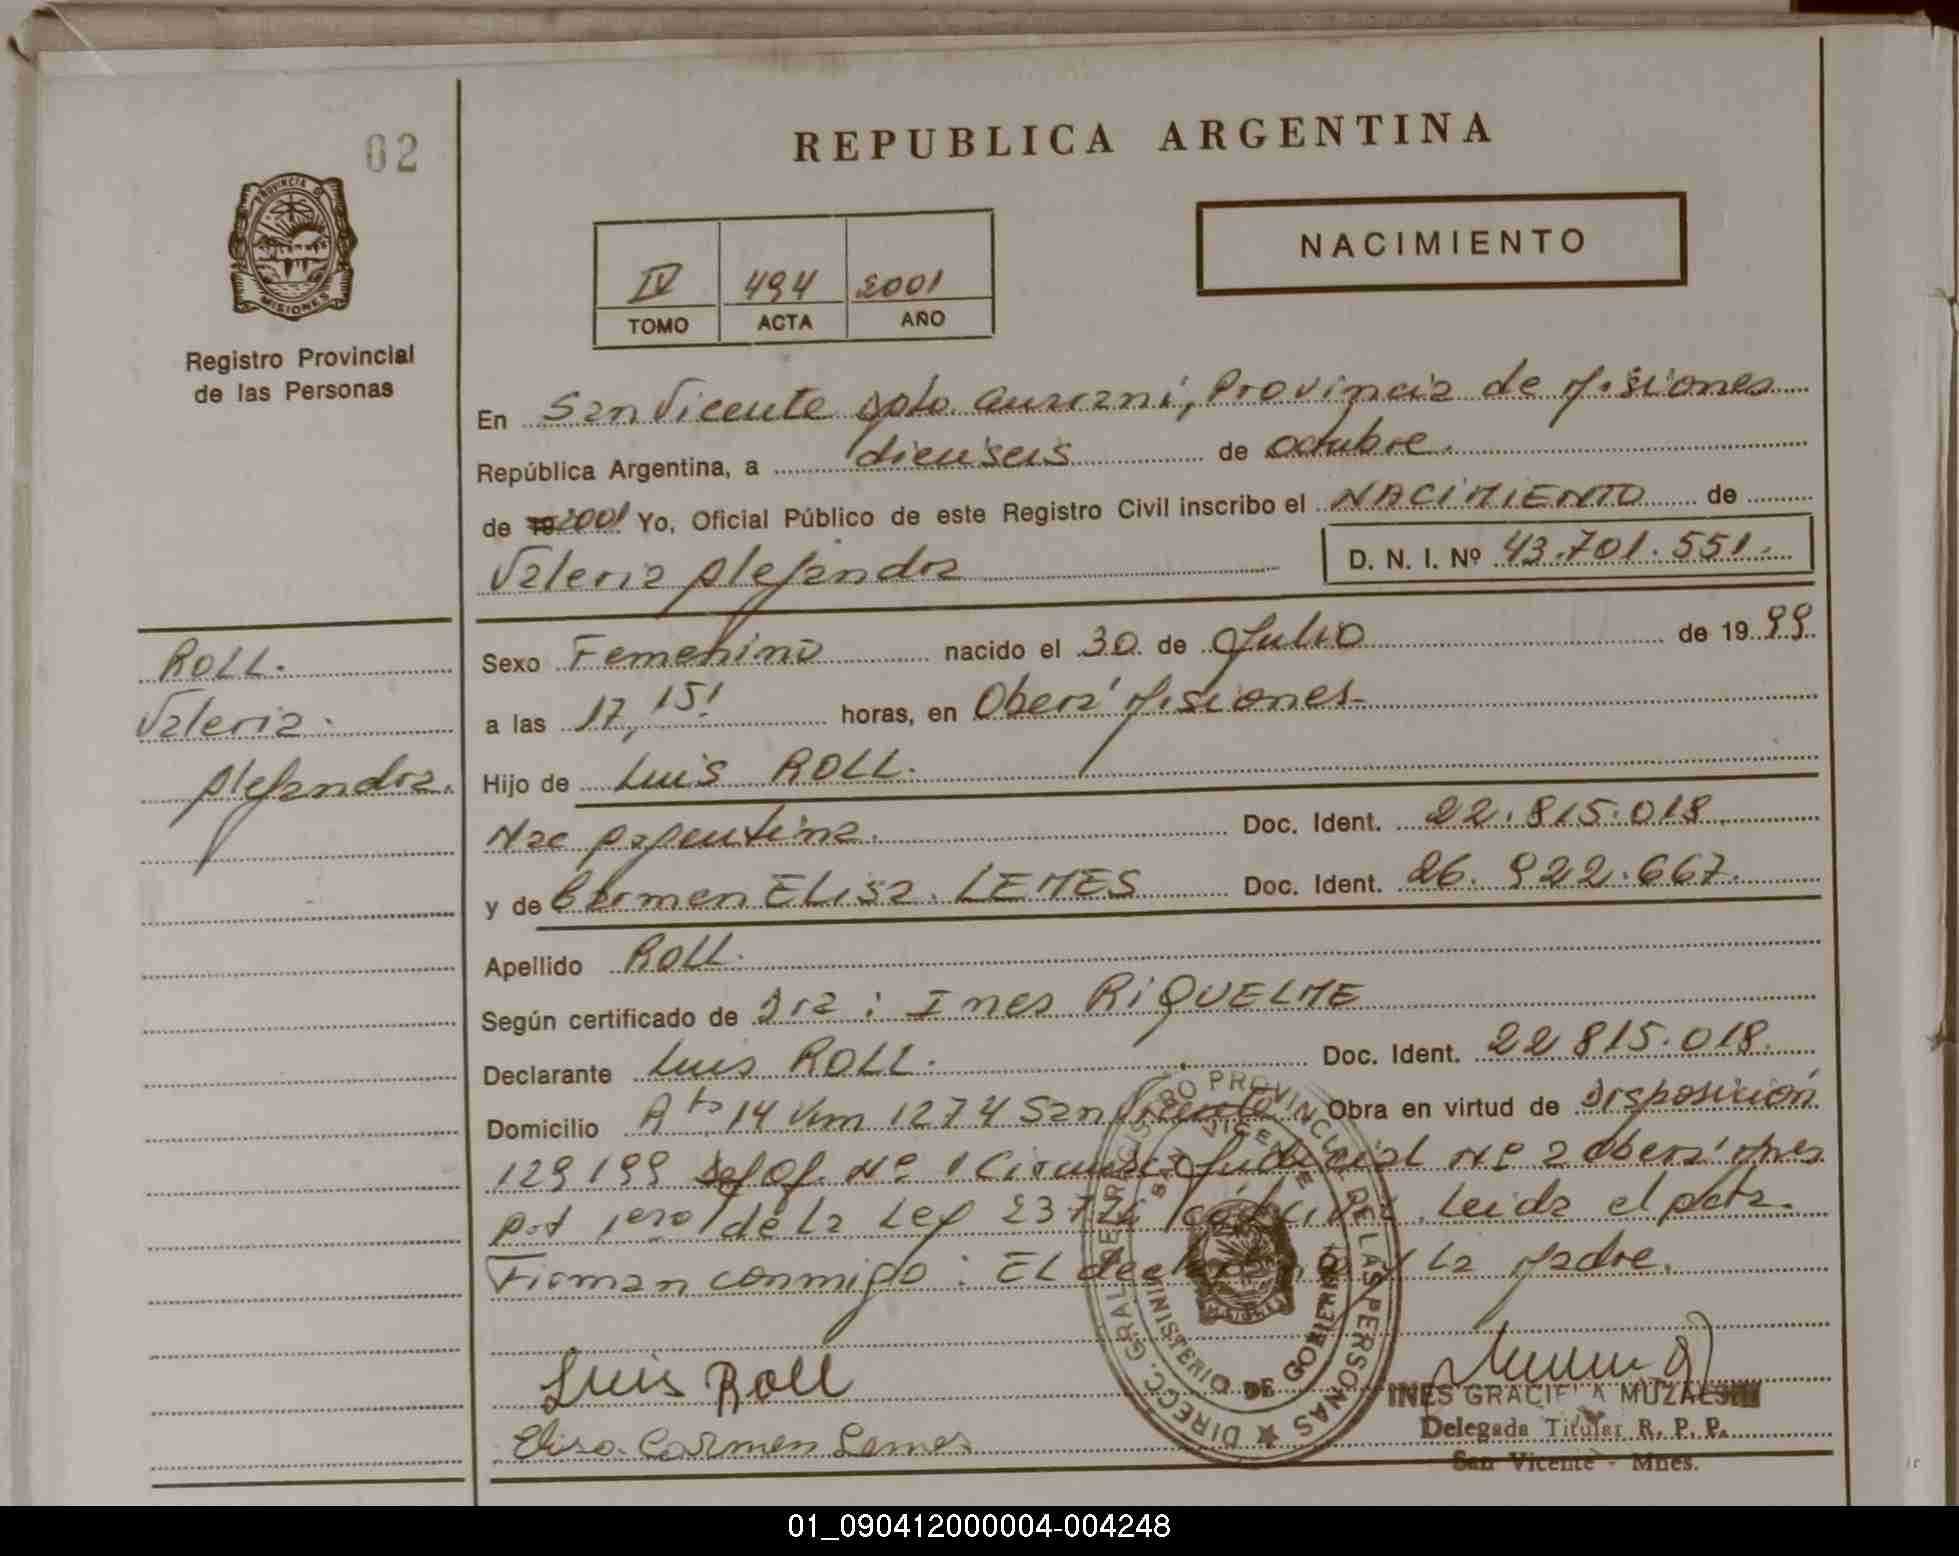 02
REPUBLICA ARGENTINA
PROVINCIA DE
MISIONES
Registro Provincial
de las Personas
NACIMIENTO
IV 494 2001
TOMO ACTA AÑO
En San Vicente Dpto Guarani, Provincia de Misiones
República Argentina, a dieciseis de octubre.
de 19 2001 Yo, Oficial Público de este Registro Civil inscribo el NACIMIENTO de
Valeria Alejandra D. N. I. Nº 43.701.551.
ROLL.
Valeria
Alejandra.
Sexo Femenino nacido el 30 de Julio de 1999.
a las 17,15! horas, en Oberá Misiones-
Hijo de Luis ROLL.
Nac Argentina. Doc. Ident. 22.815.018.
y de Carmen ELisa. LEMES Doc. Ident. 26.922.667.
Apellido ROLL.
Según certificado de Dra: Ines RIQUELME
Declarante Luis ROLL. Doc. Ident. 22 815.018.
Domicilio Rta 14 Km 1274 San Vicente Obra en virtud de Disposición
129199 Of. Nº 1 Judicial Nº 2 Oberá Mnes
Art 1ero de La Ley Leida el Acta.
Firman conmigo: EL declarante y La Madre.
Luis Roll
Elisa Carmen Lemes
DIRECC. GRAL. DEL REGISTRO PROVINCIAL DE LAS PERSONAS
SAN VICENTE
MINISTERIO DE GOBIERNO
MISIONES
INES GRACIELA
Delegada Titular R. P. P.
San Vicente - Mnes.
01_090412000004-004248